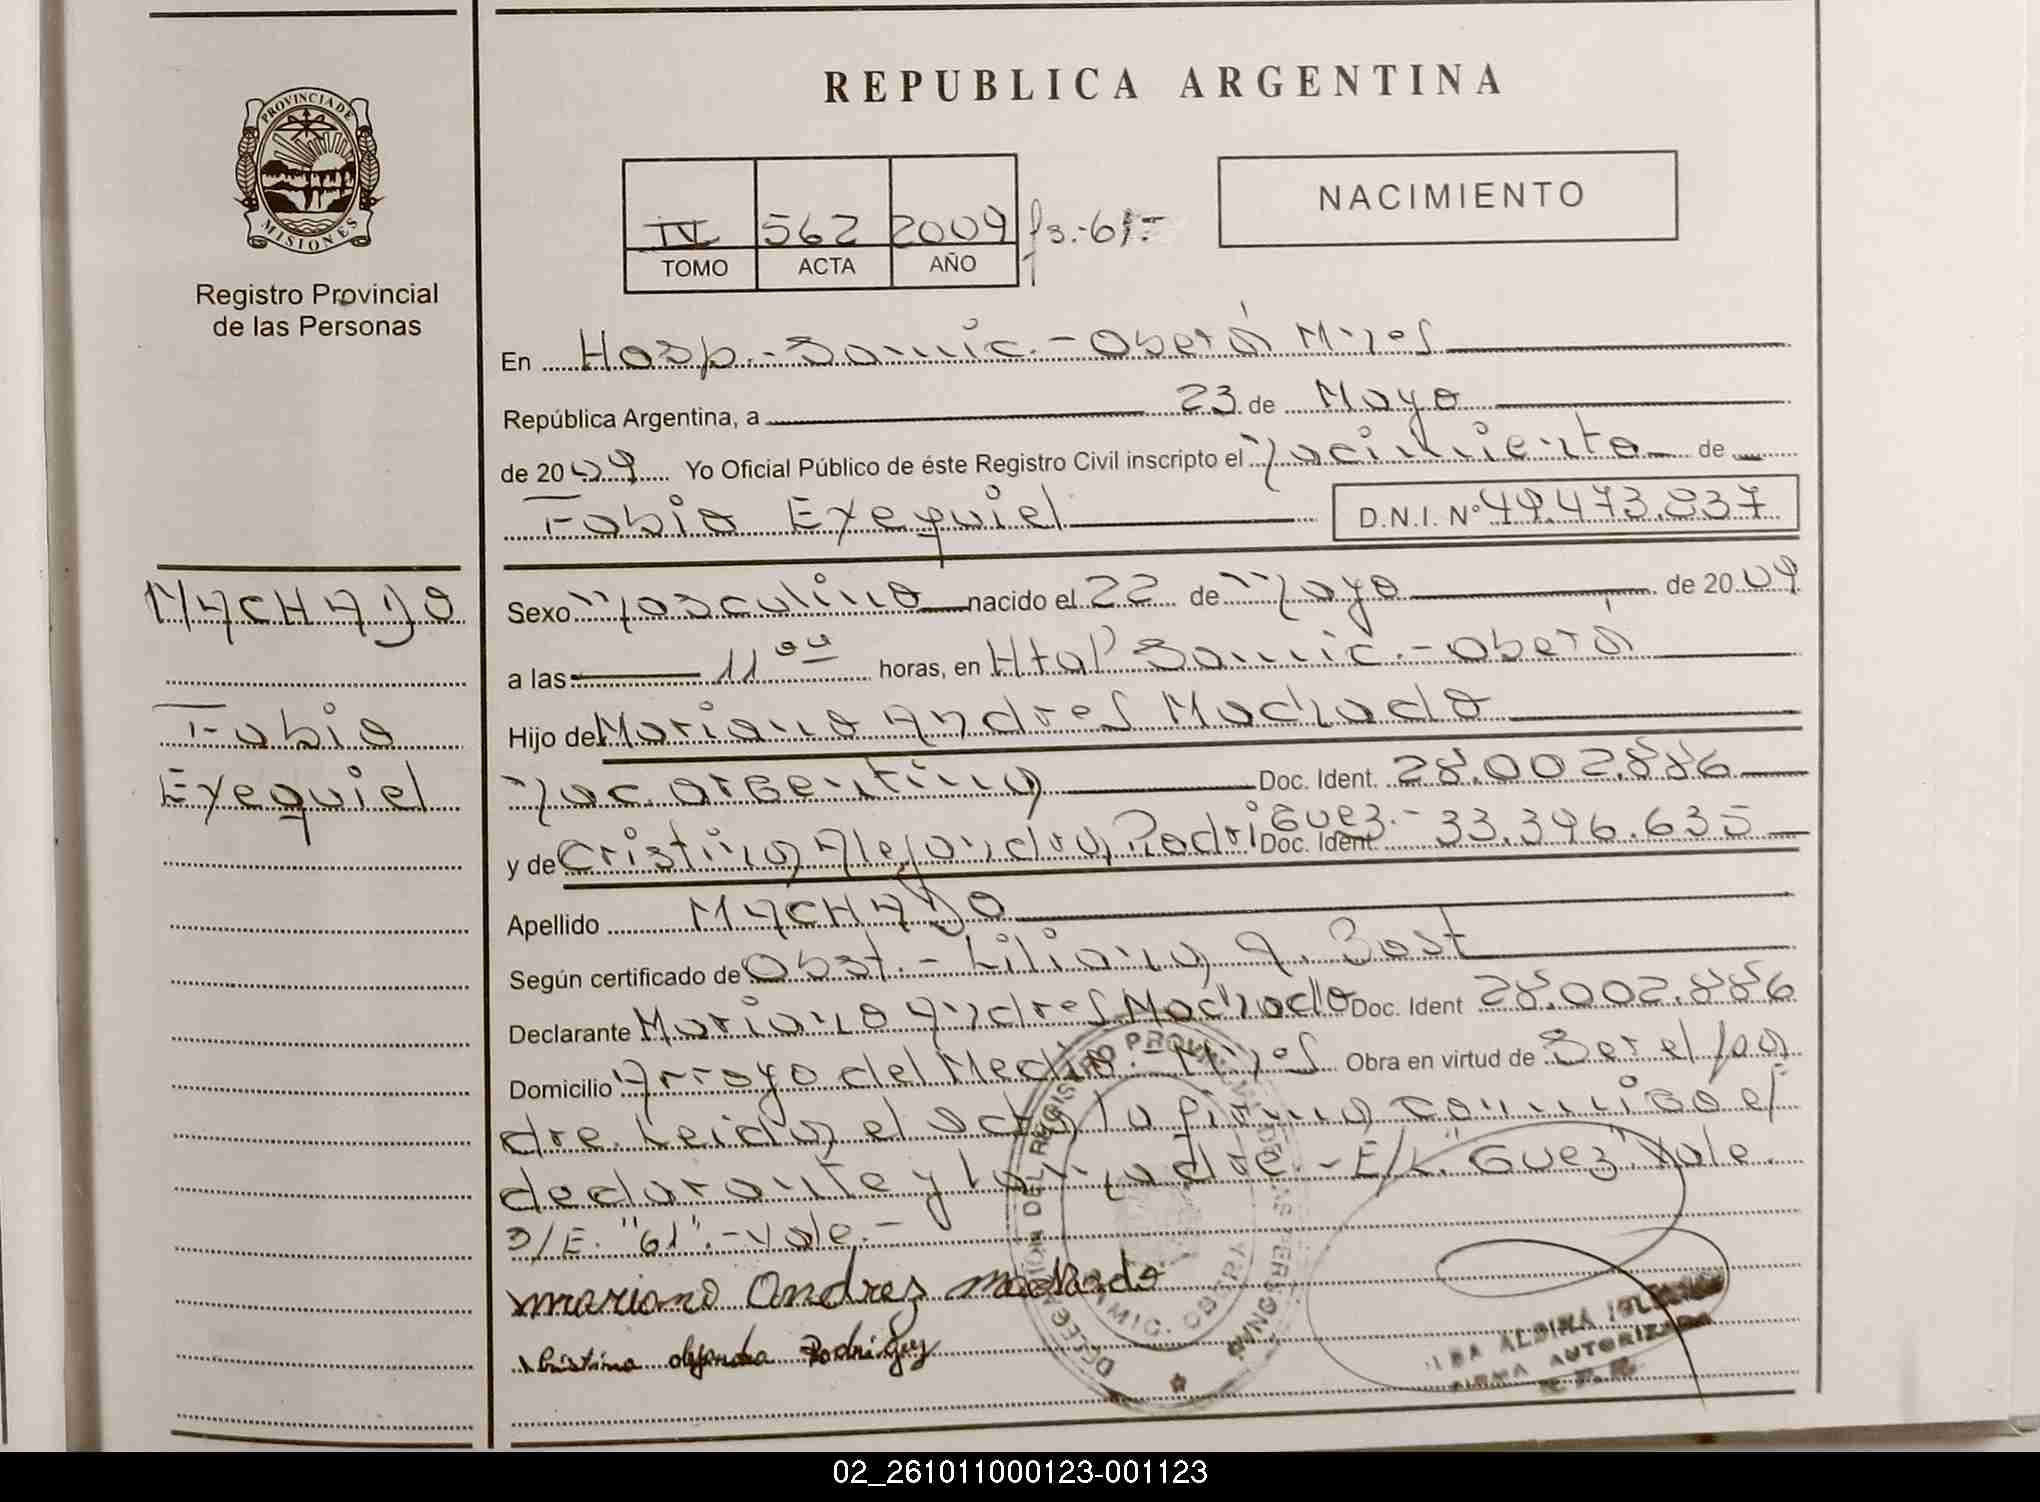 REPUBLICA ARGENTINA
PROVINCIA DE
MISIONES
Registro Provincial
de las Personas
IV 562 2009 fs.-61.-
TOMO ACTA AÑO
NACIMIENTO
En Hosp.-Samic.-Oberá Mnes
República Argentina, a 23 de Mayo
de 2009 Yo Oficial Público de éste Registro Civil inscripto el Nacimiento de
Fabio Exequiel D.N.I. Nº 49.473.837
MACHADO
Fabio
Exequiel
Sexo Masculino nacido el 22 de Mayo de 2009
a las 11 00 horas, en Htal Samic.-Oberá
Hijo de Mariano Andres Machado
Nac. argentina Doc. Ident. 28.002.886
y de Cristina Alejandra Rodriguez.- Doc. Ident. 33.396.635
Apellido MACHADO
Según certificado de Obst.-Liliana A. Bost
Declarante Mariano Andres Machado Doc. Ident 28.002.886
Domicilio Arroyo del Medio.-Mnes Obra en virtud de Ser el pa
dre. Leida el acta la firma conmigo el
declarante y la madre.-E/L. "Guez" Vale.
S/E. "61".-Vale.-
mariano Andres machado
Cristina alejandra Rodriguez
DELEGACION DEL REGISTRO PROVINCIAL DE LAS PERSONAS
ALBINA
FIRMA AUTORIZADA
R.P.P.
02_261011000123-001123